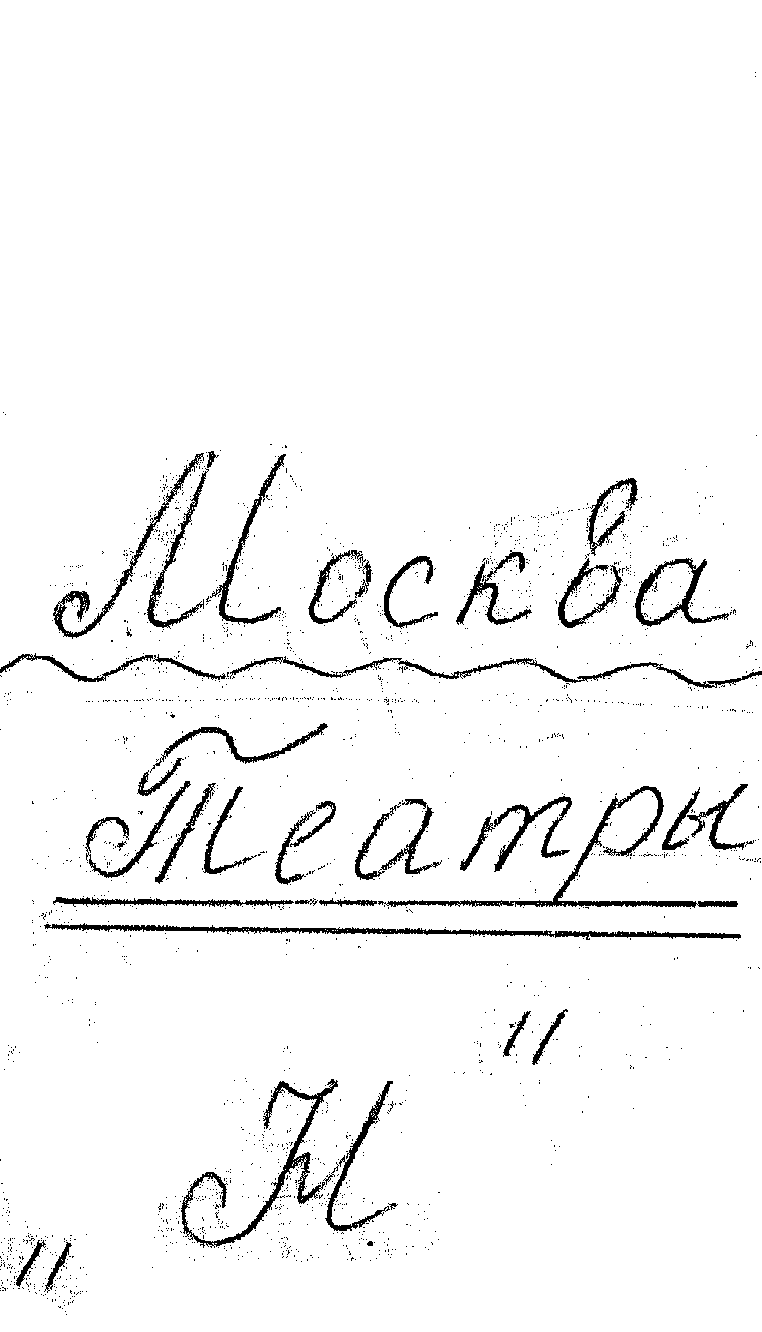 Москва
Театры
„Н"